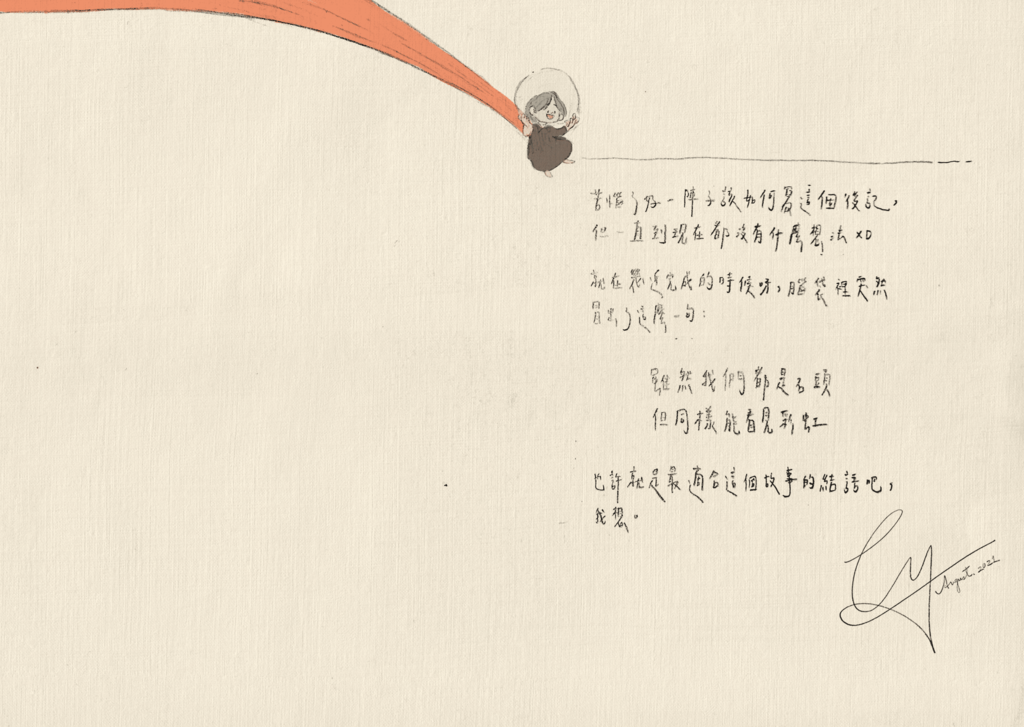 苦惱了好一陣子該如何寫這個後記，
但一直到現在都沒有什麼想法 XD
就在幾近完成的時候呀，腦袋裡突然
冒出了這麼一句：
雖然我們都是石頭
但同樣能看見彩虹
也許就是最適合這個故事的結語吧，
我想。
August. 2021